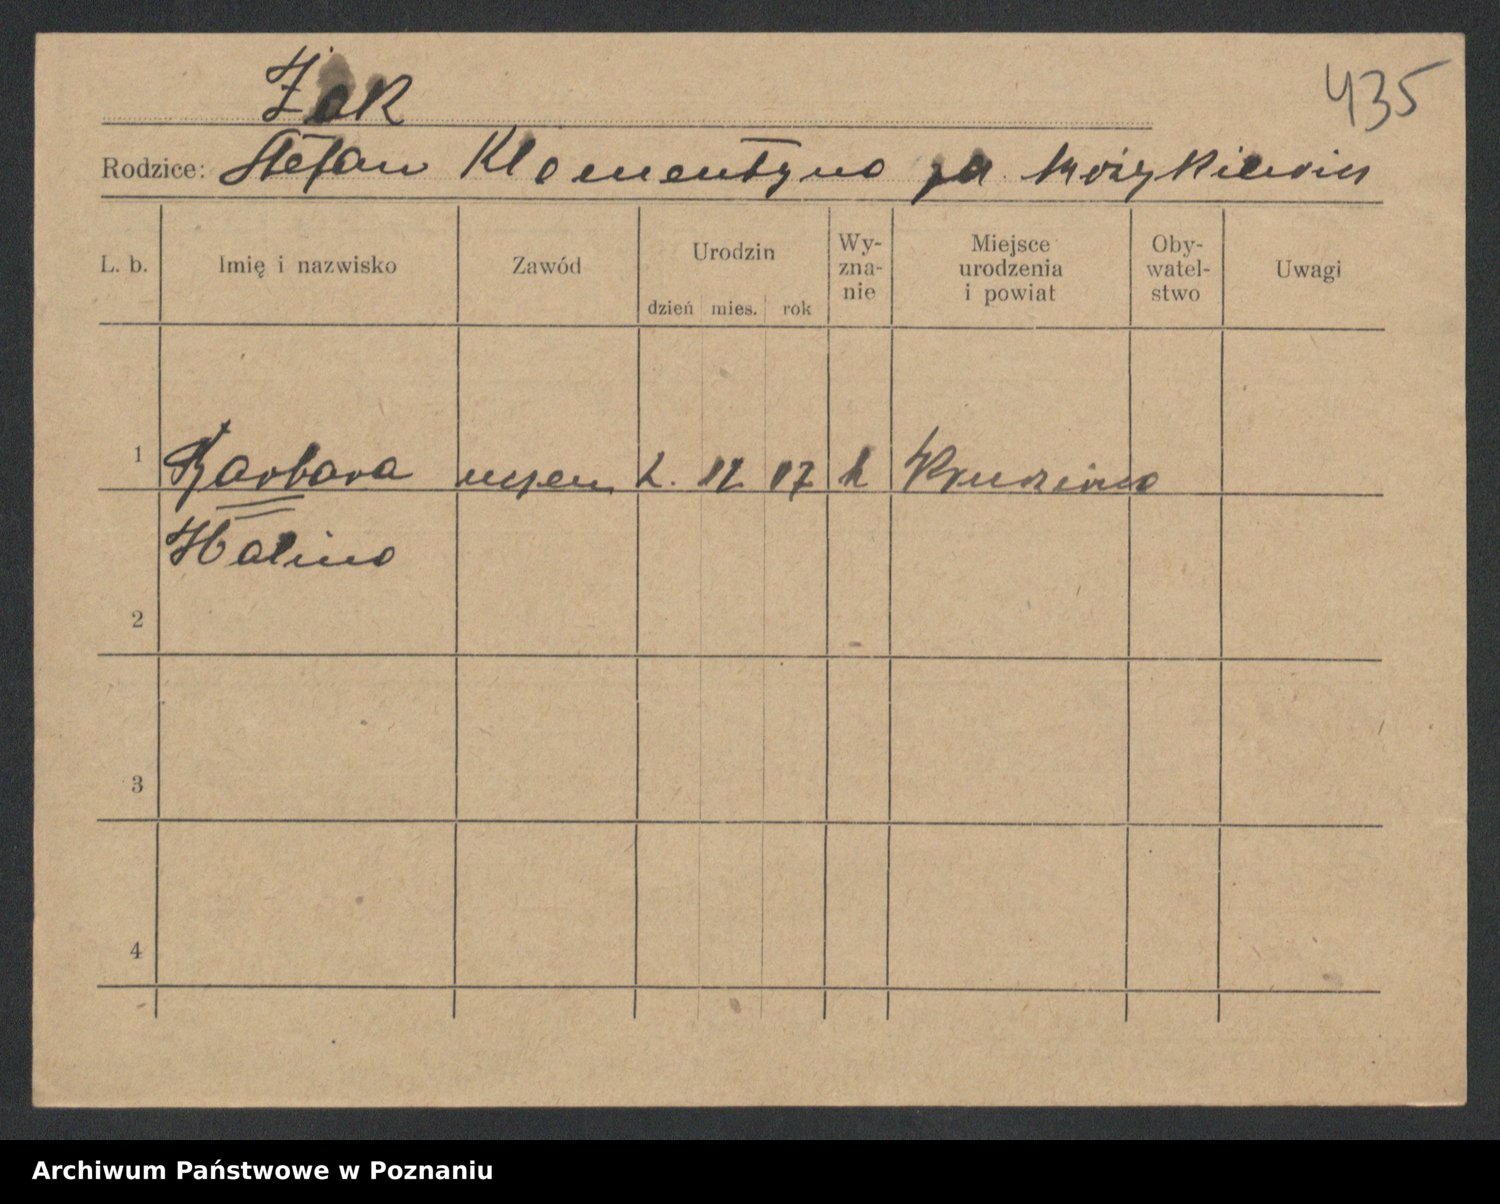 Żak
435
Rodzice: Stefan Klementyna
L. b. Imię i nazwisko Zawód Urodzin dzień mies. rok Wy-zna-nie Miejsce urodzenia i powiat Oby-watel-stwo Uwagi
1 Barbara uczen. 2. 12 17 k
Halina
2
3
4
Archiwum Państwowe w Poznaniu